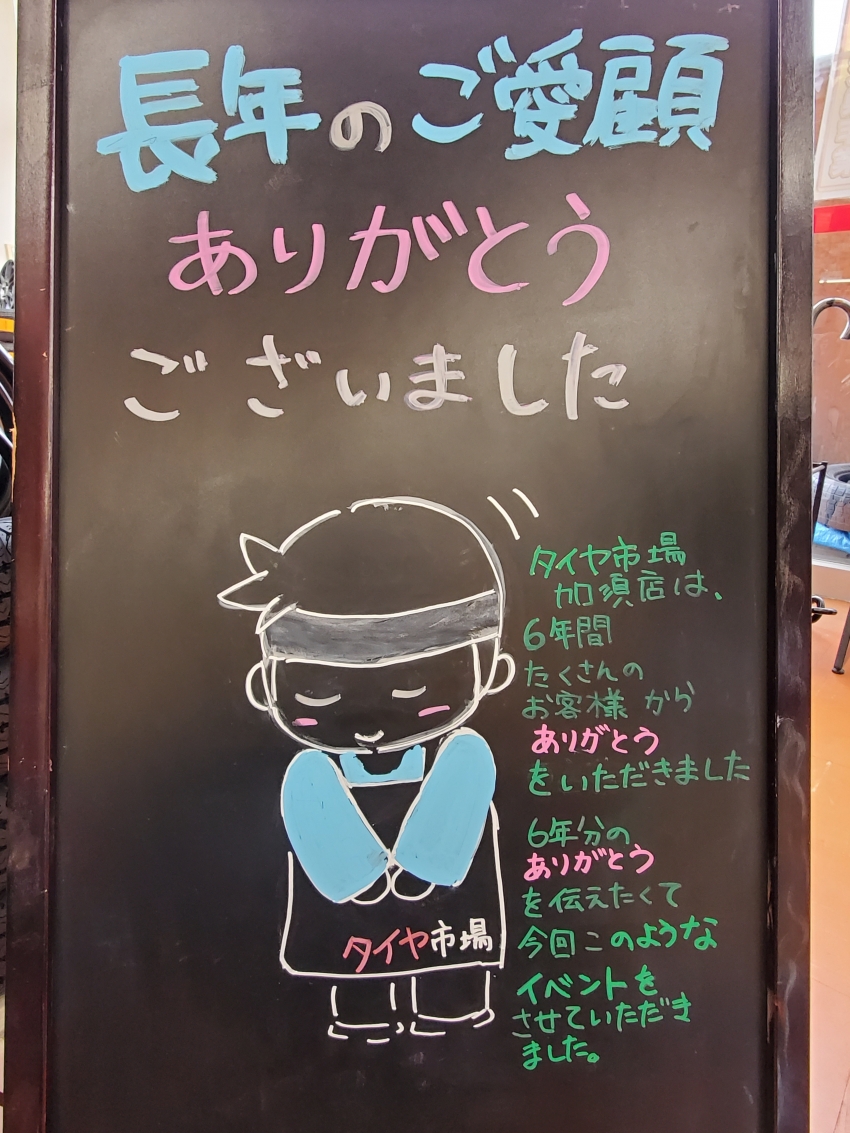 長年のご愛顧
ありがとう
ございました
タイヤ市場
加須店は、
6年間
たくさんの
お客様から
ありがとう
をいただきました
6年分の
ありがとう
を伝えたくて
今回このような
イベントを
させていただき
ました。
タイヤ市場